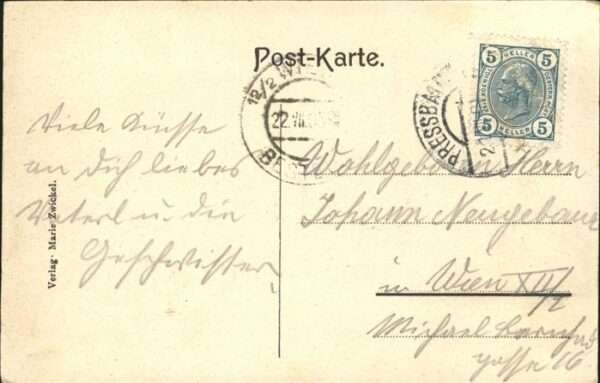 Post-Karte.
Viele Küsse
an Dich liebes
Vaterl u. die
Geschwister
Verlag: Marie Zwickel.
12/2 WIEN
22.VII.
PRESSBAUM
5 HELLER 5
5 HELLER 5
Wohlgeboren Herrn
Johann Neugebauer
in Wien XII/2
Michael Bernhard
gasse 16